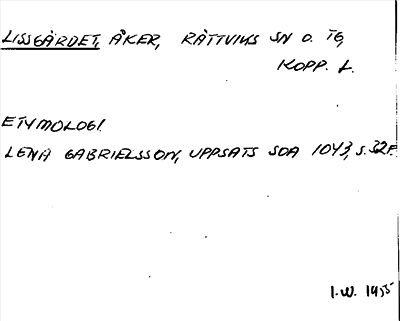 LISSGÄRDET, ÅKER, RÄTTVIKS SN O. TG,
KOPP. L.
ETYMOLOGI.
LENA GABRIELSSON, UPPSATS SOA 1043, S. 32F.
I.W. 1955